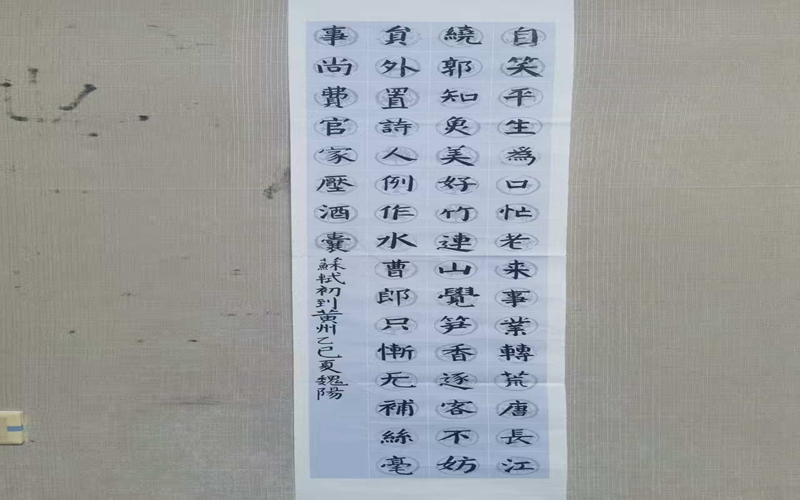 自笑平生為口忙老来事業轉荒唐長江
繞郭知魚美好竹連山覺笋香逐客不妨
貟外置詩人例作水曹郎只慚无補絲毫
事尚費官家壓酒囊
蘇軾初到黄州乙巳夏魏陽